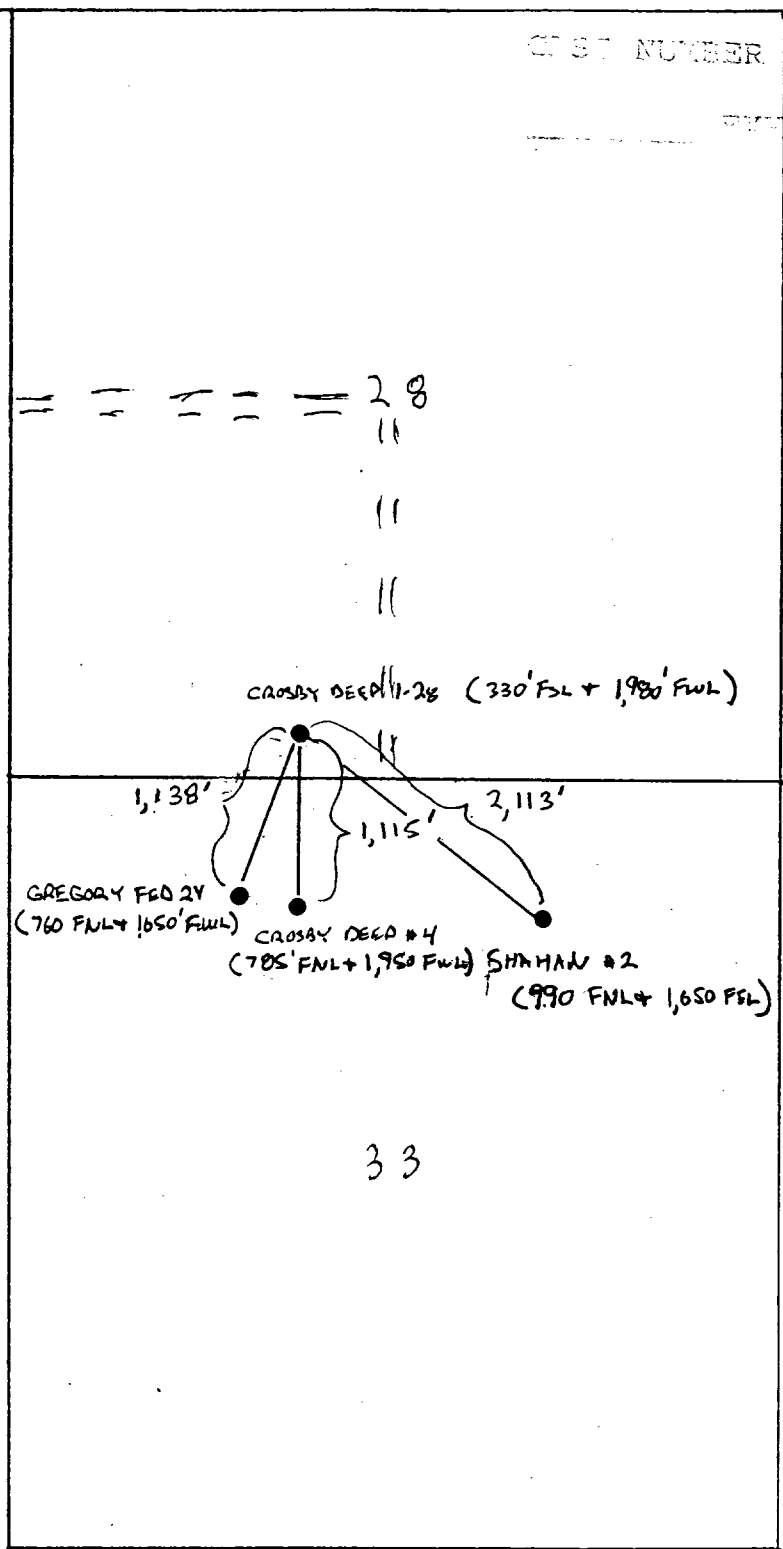 NUMBER
28
CROSBY DEEP 1-28 (330' FSL + 1,980' FWL)
1,138'
2,113'
1,115'
GREGORY FED 2Y
(760 FNL + 1650' FWL)
CROSBY DEEP #4
(785' FNL + 1,950 FWL)
SHAHAN #2
(990 FNL + 1,650 FSL)
33